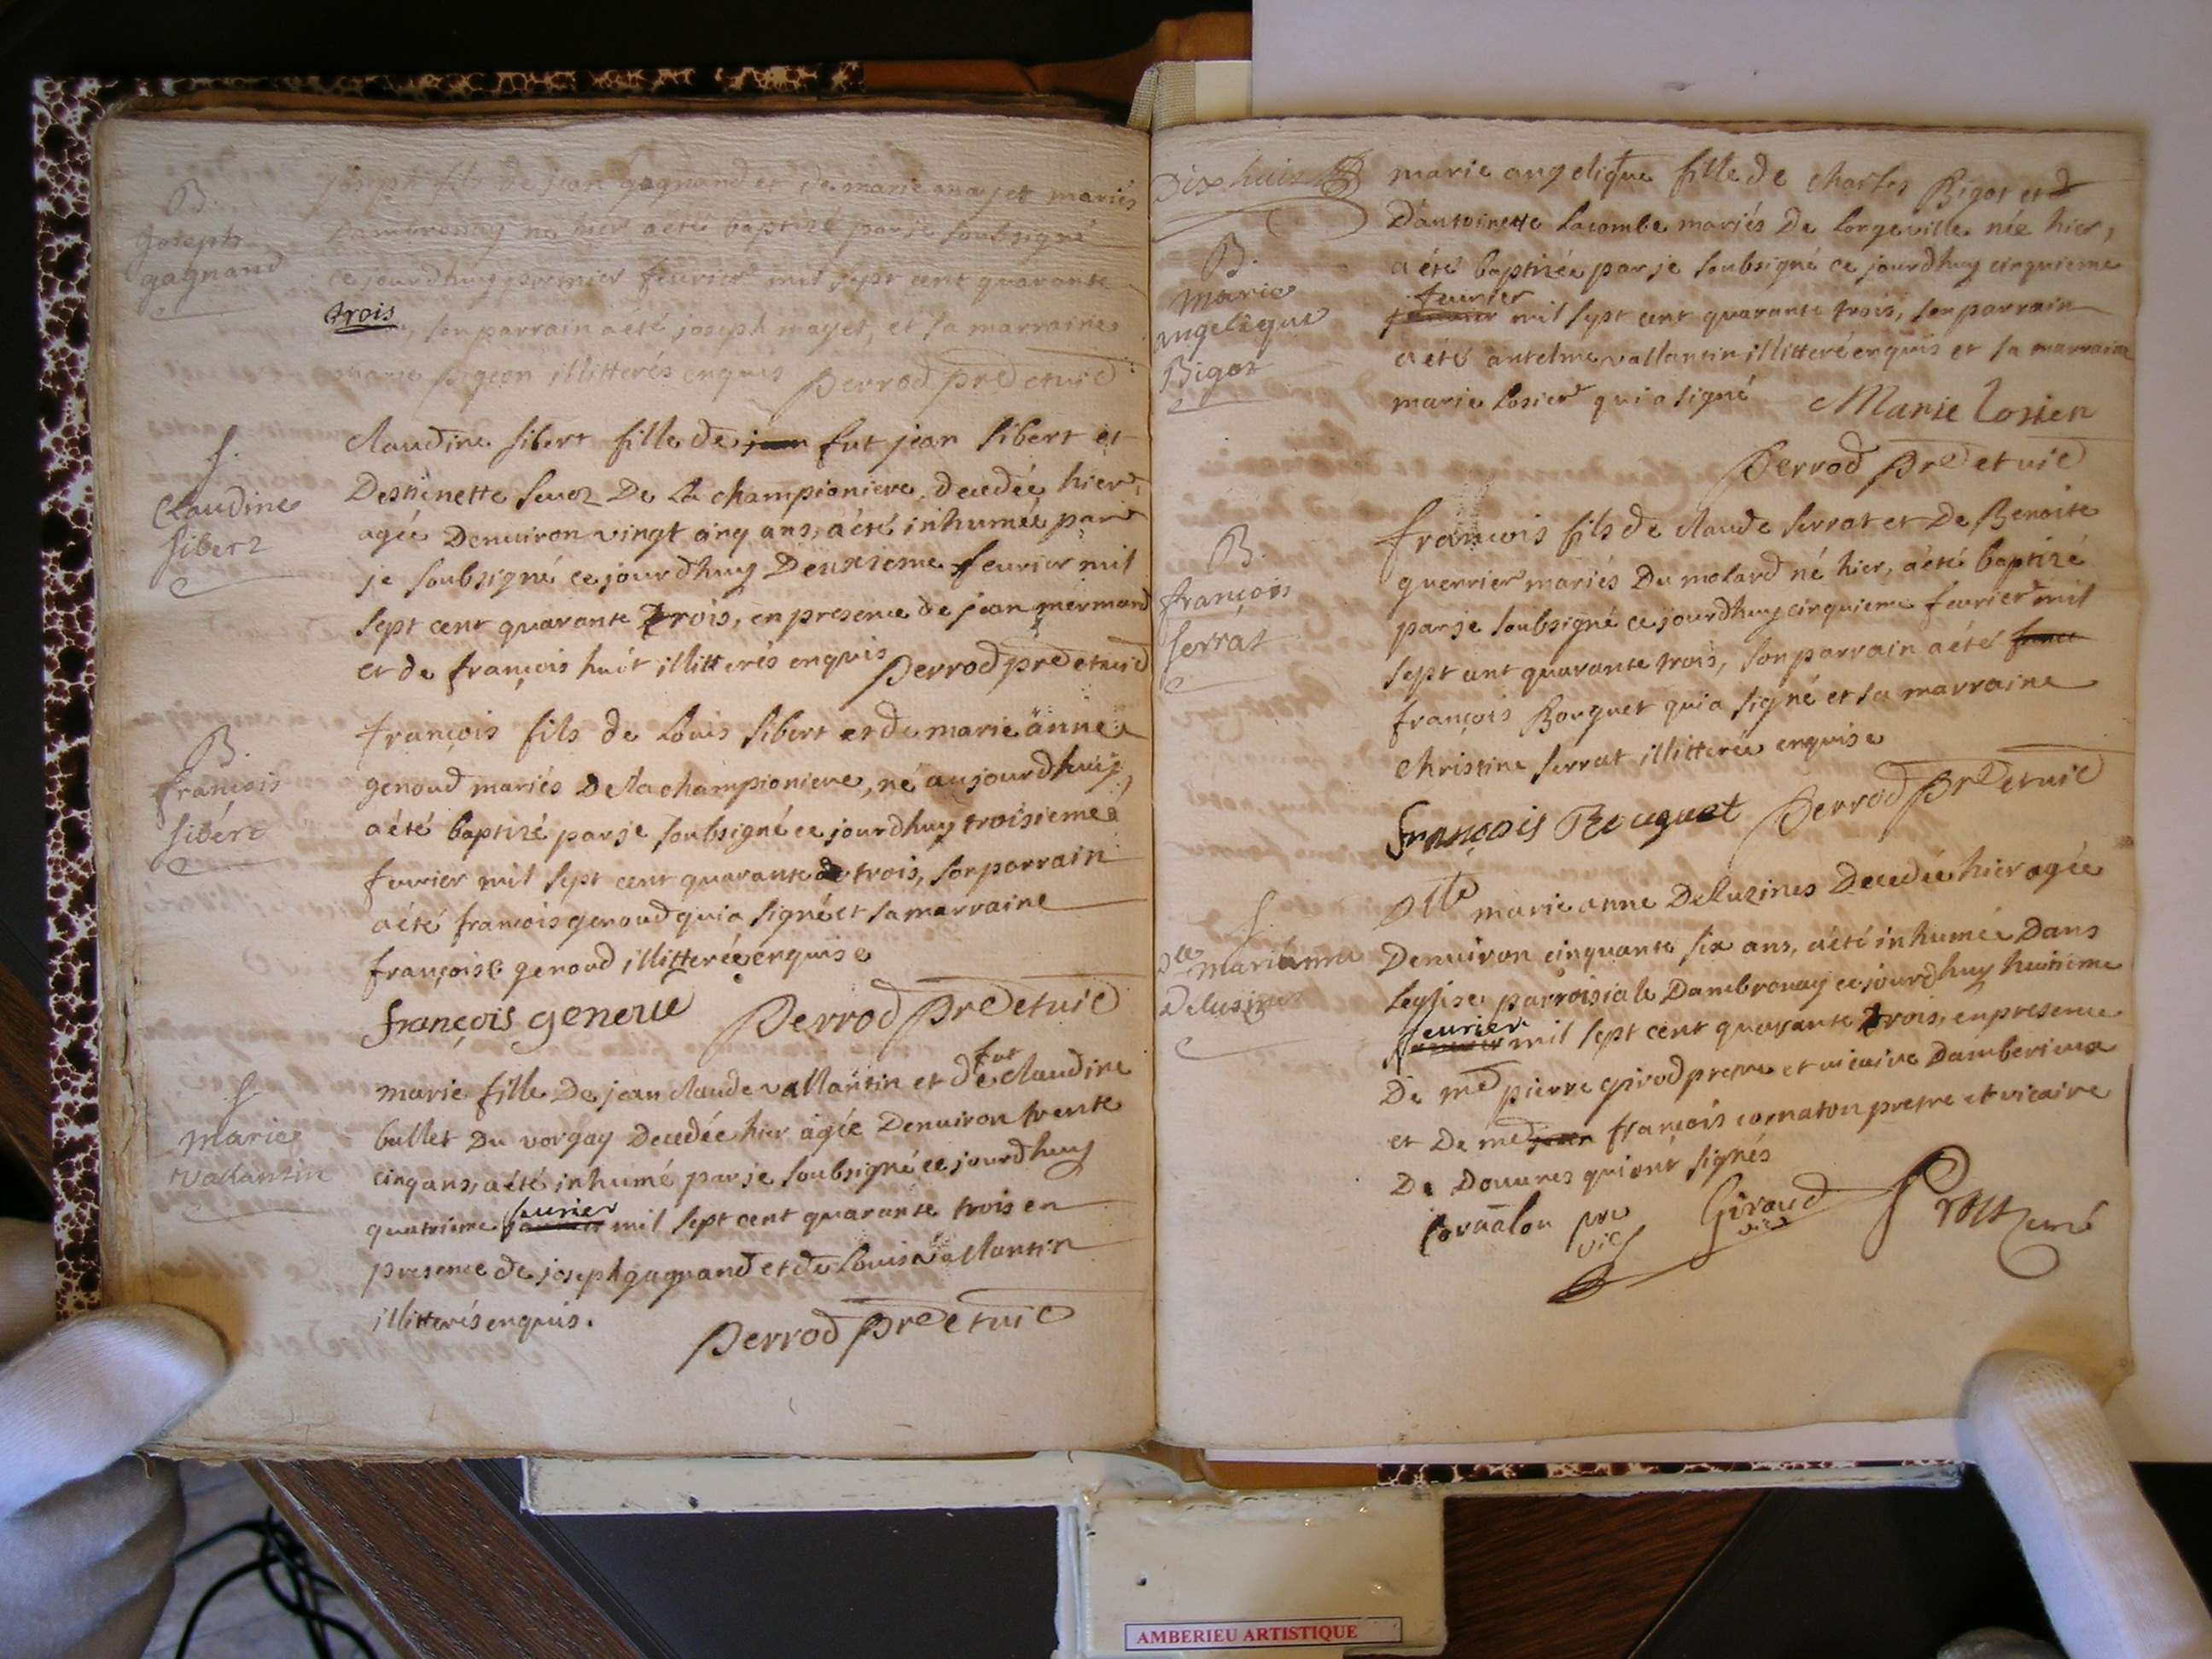 B.
Joseph
gagnand
joseph fils de jean gagnand et de marie mayet mariés
d'ambronay né hier a été baptizé par je soubsigné
ce jourdhuy premier feurier mil sept cent quarante
trois, son parrain a été joseph mayet, et sa marraine
marie pigeon illitterés enquis Perrod pre et vic
S.
Claudine
Sibert
Claudine Sibert fille de jean fut jean Sibert et
Destienette Seuoz De La championiere, decedée hier,
agée Denuiron vingt cinq ans, a été inhumée par
je soubsigné ce jourdhuy Deuxieme feurier mil
sept cent quarante trois, en presence de jean mermand
et de françois huit illitterés enquis Perrod pre et vic
B.
françois
Sibért
françois fils de Louis Sibert et de marie anne
genoud mariés De la championiere, né aujourdhuy
a été baptizé par je soubsigné ce jourdhuy troisieme
feurier mil sept cent quarante trois, son parrain
a été françois genoud qui a signé et sa marraine
françoise genoud illitterée enquise
françois genoud Perrod pre et vic
S.
marie
vallantin
marie fille De jean claude vallantin et de fut claudine
bullet Du vorgay Decedée hier agée Denuiron trente
cinq ans, a été inhumé par je soubsigné ce jourdhuy
quatrieme feurier mil sept cent quarante trois en
presence de joseph gagnand et de Louis vallantin
illitterés enquis.
Perrod pre et vic
Dix huit
B.
Marie
angelique
Bigot
marie angelique fille de charles Bigot et
D'antoinette Lacombe mariés De Longeville née hier,
a été baptizée par je soubsigné ce jourdhuy cinquieme
feurier mil sept cent quarante trois, son parrain
a été antelme vallantin illitteré enquis et sa marraine
marie Losier qui a signé Marie Losier
Perrod pre et vic
B.
françois
Serrat
françois fils de claude Serrat et De Benoite
guerrier mariés Du molard né hier, a été baptizé
par je soubsigné ce jourdhuy cinquieme feurier mil
sept cent quarante trois, son parrain a été
françois Bouquet qui a signé et sa marraine
christine Serrat illitterée enquise
françois Bouquet Perrod pre et vic
S.
Dlle marianne
Delusines
Dlle marie anne Deluzines Decedée hier agée
Denuiron cinquante six ans, a été inhumée Dans
Leglise parroisiale Dambronay ce jourdhuy huitieme
feurier mil sept cent quarante trois, en presence
De mre pierre girod pretre et vicaire Damberieux
et De mre jean françois cornaton pretre et vicaire
De Douures qui ont signés
pre
vic
Giroud
vic
Prost curé
AMBERIEU ARTISTIQUE